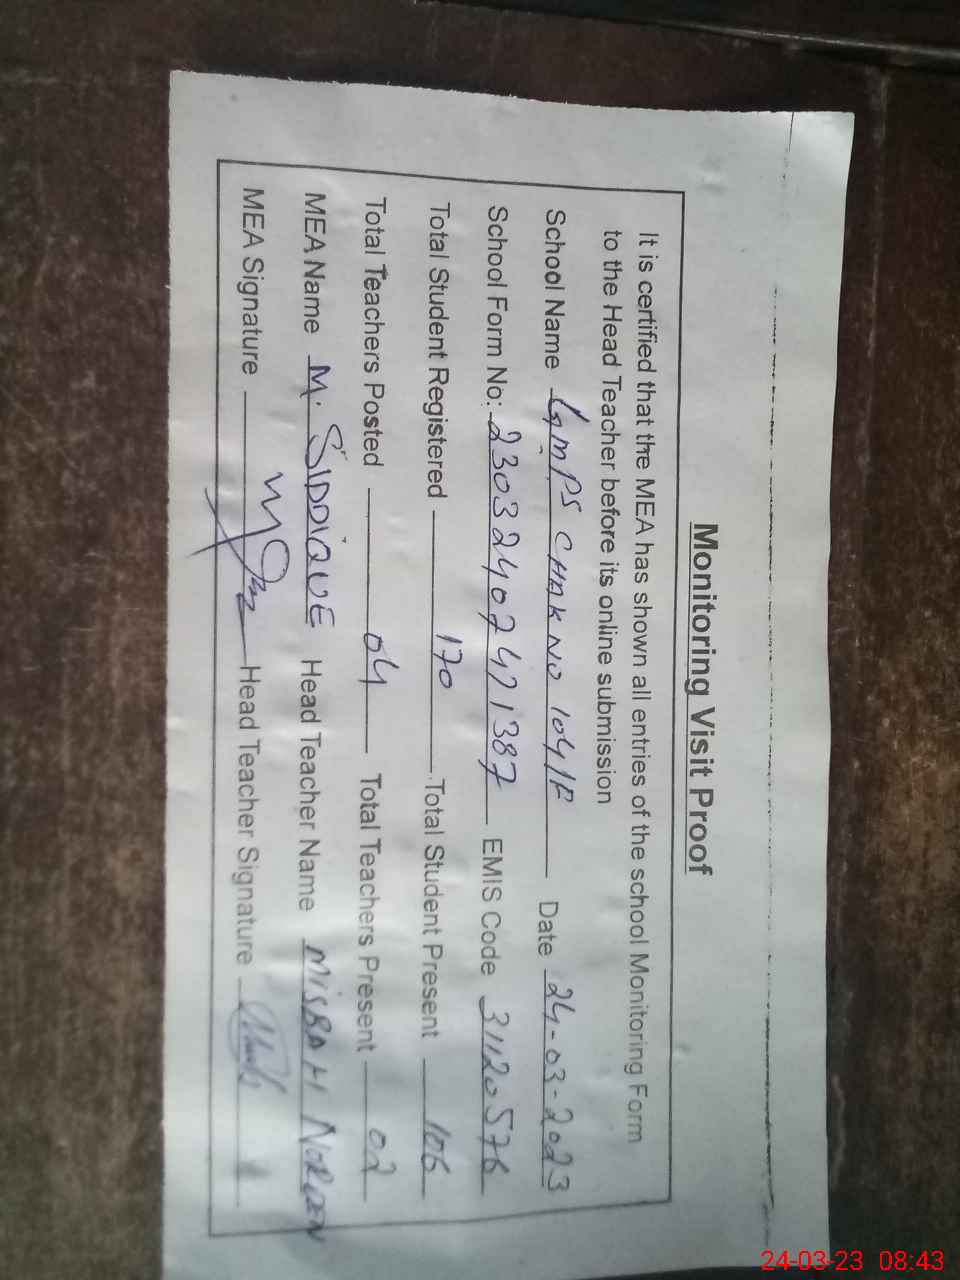 Monitoring Visit Proof
It is certified that the MEA has shown all entries of the school Monitoring Form
to the Head Teacher before its online submission
School Name GMPS CHAK NO 104/F Date 24-03-2023
School Form No: 23032402471387 EMIS Code 31120576
Total Student Registered 170 Total Student Present 106
Total Teachers Posted 04 Total Teachers Present 02
MEA Name M. SIDDIQUE Head Teacher Name MISBAH NOREEN
MEA Signature Head Teacher Signature
24-03-23 08:43